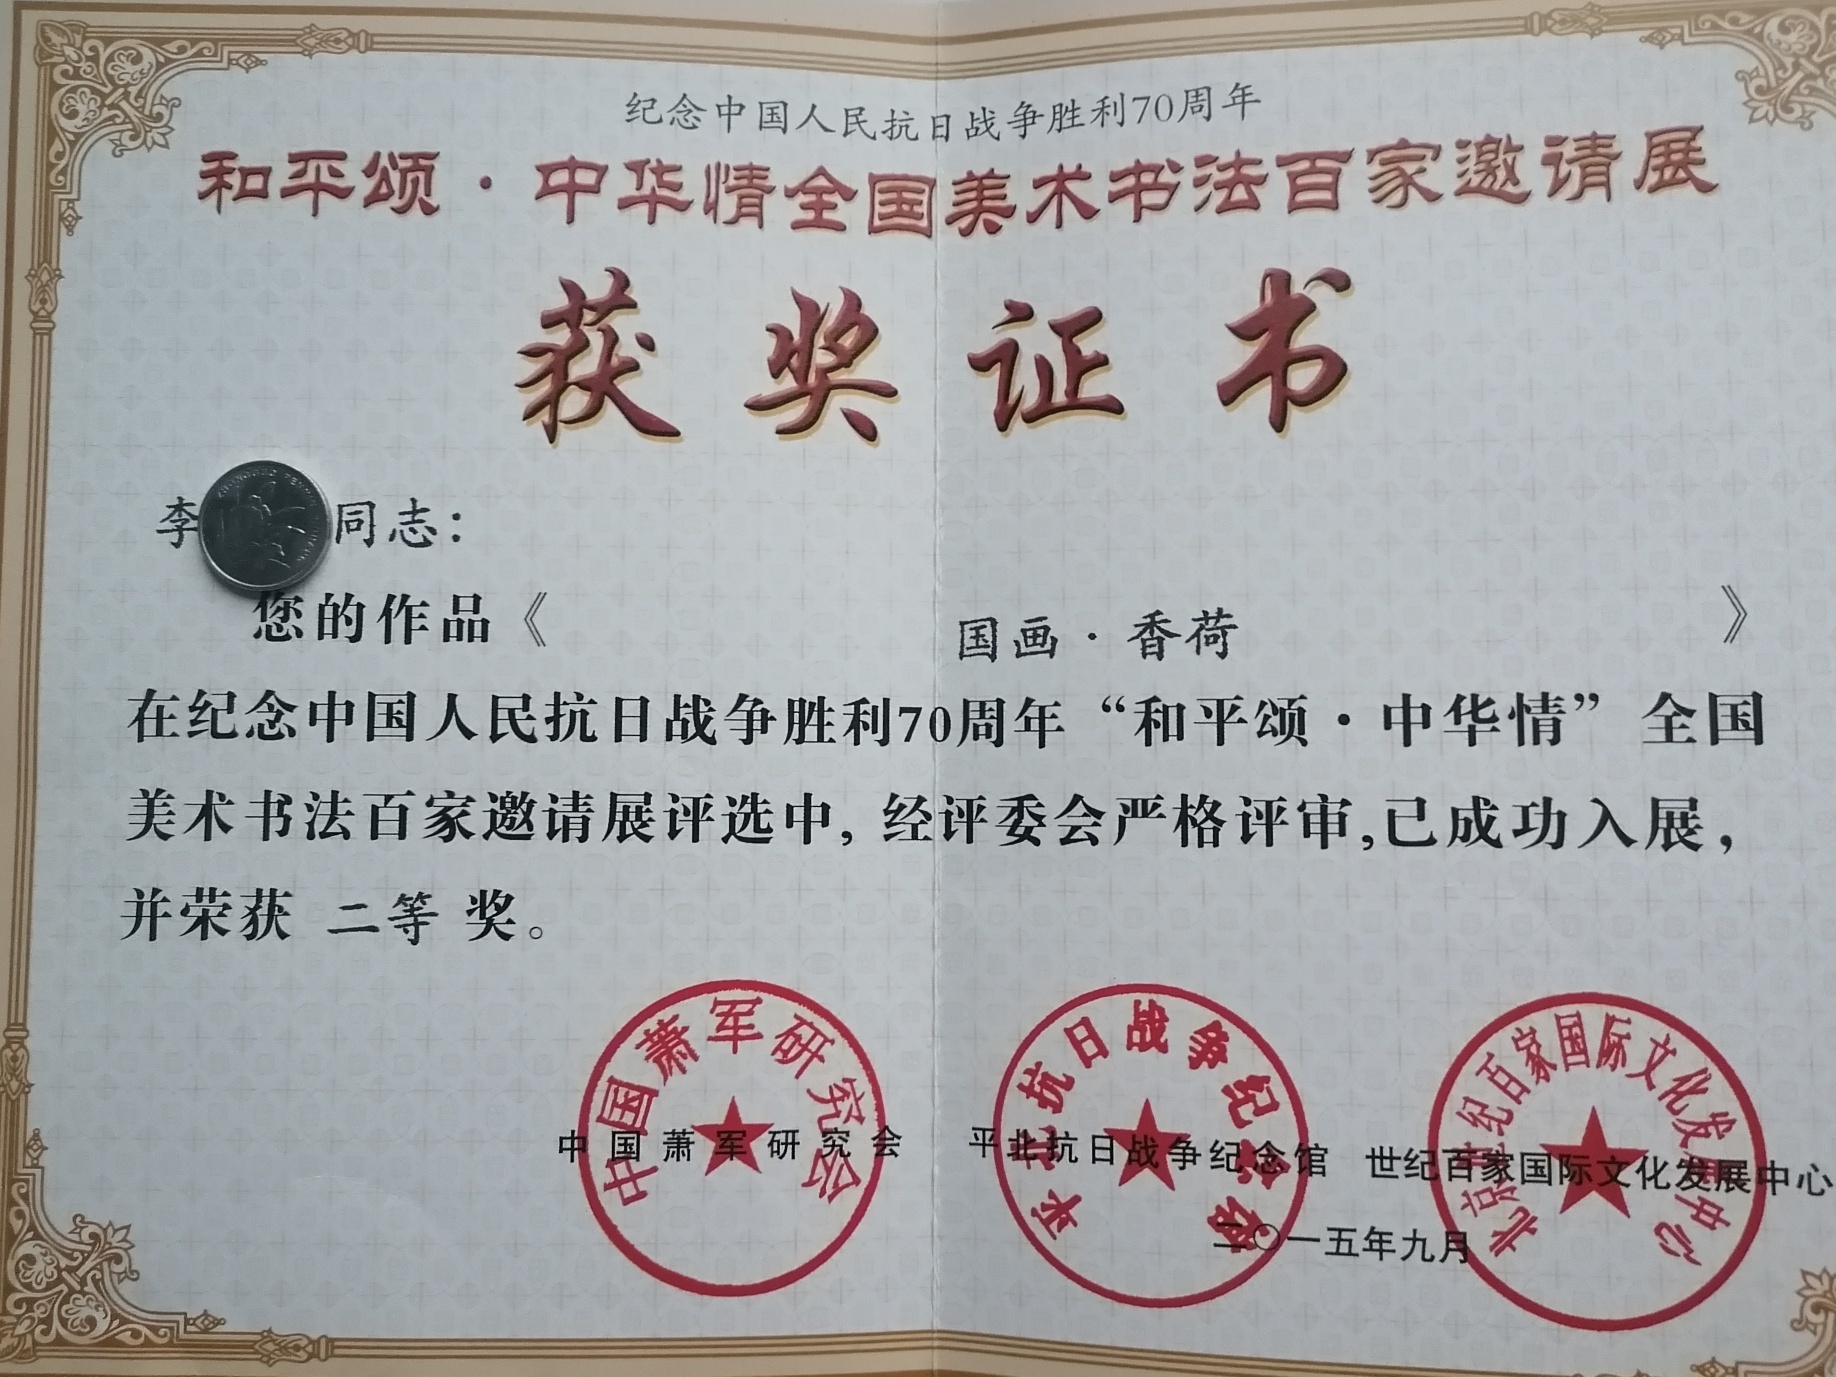 纪念中国人民抗日战争胜利70周年
和平颂·中华情全国美术书法百家邀请展
获奖证书
李 同志：
您的作品《 国画·香荷 》
在纪念中国人民抗日战争胜利70周年“和平颂·中华情”全国
美术书法百家邀请展评选中，经评委会严格评审，已成功入展，
并荣获 二等 奖。
中国萧军研究会
平北抗日战争纪念馆
北京世纪百家国际文化发展中心
中国萧军研究会 平北抗日战争纪念馆 世纪百家国际文化发展中心
二〇一五年九月